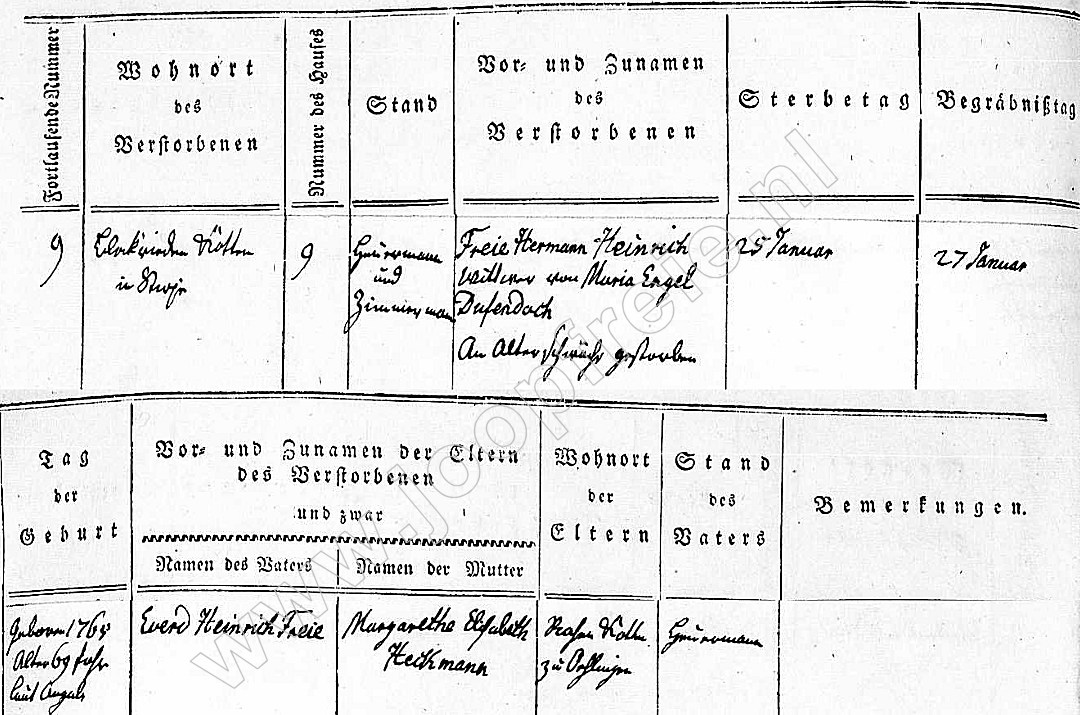 Fortlaufende Nummer
Wohnort
des
Verstorbenen
Nummer des Hauses
Stand
Vor- und Zunamen
des
Verstorbenen
Sterbetag
Begräbnißtag
9
Kötten
in
9
Heuermann
und
Zimmermann
Freie Hermann Heinrich
Wittwer von Maria Engel
Dufendach
An Alterschwäche gestorben
25 Januar
27 Januar
Tag
der
Geburt
Vor- und Zunamen der Eltern
des Verstorbenen
und zwar
Namen des Vaters
Namen der Mutter
Wohnort
der
Eltern
Stand
des
Vaters
Bemerkungen.
geboren 1765
Alter 69 Jahr
laut Angabe
Everd Heinrich Freie
Margarethe Elisabeth
Heckmann
zu
Heuermann
www.Joopfreie.nl